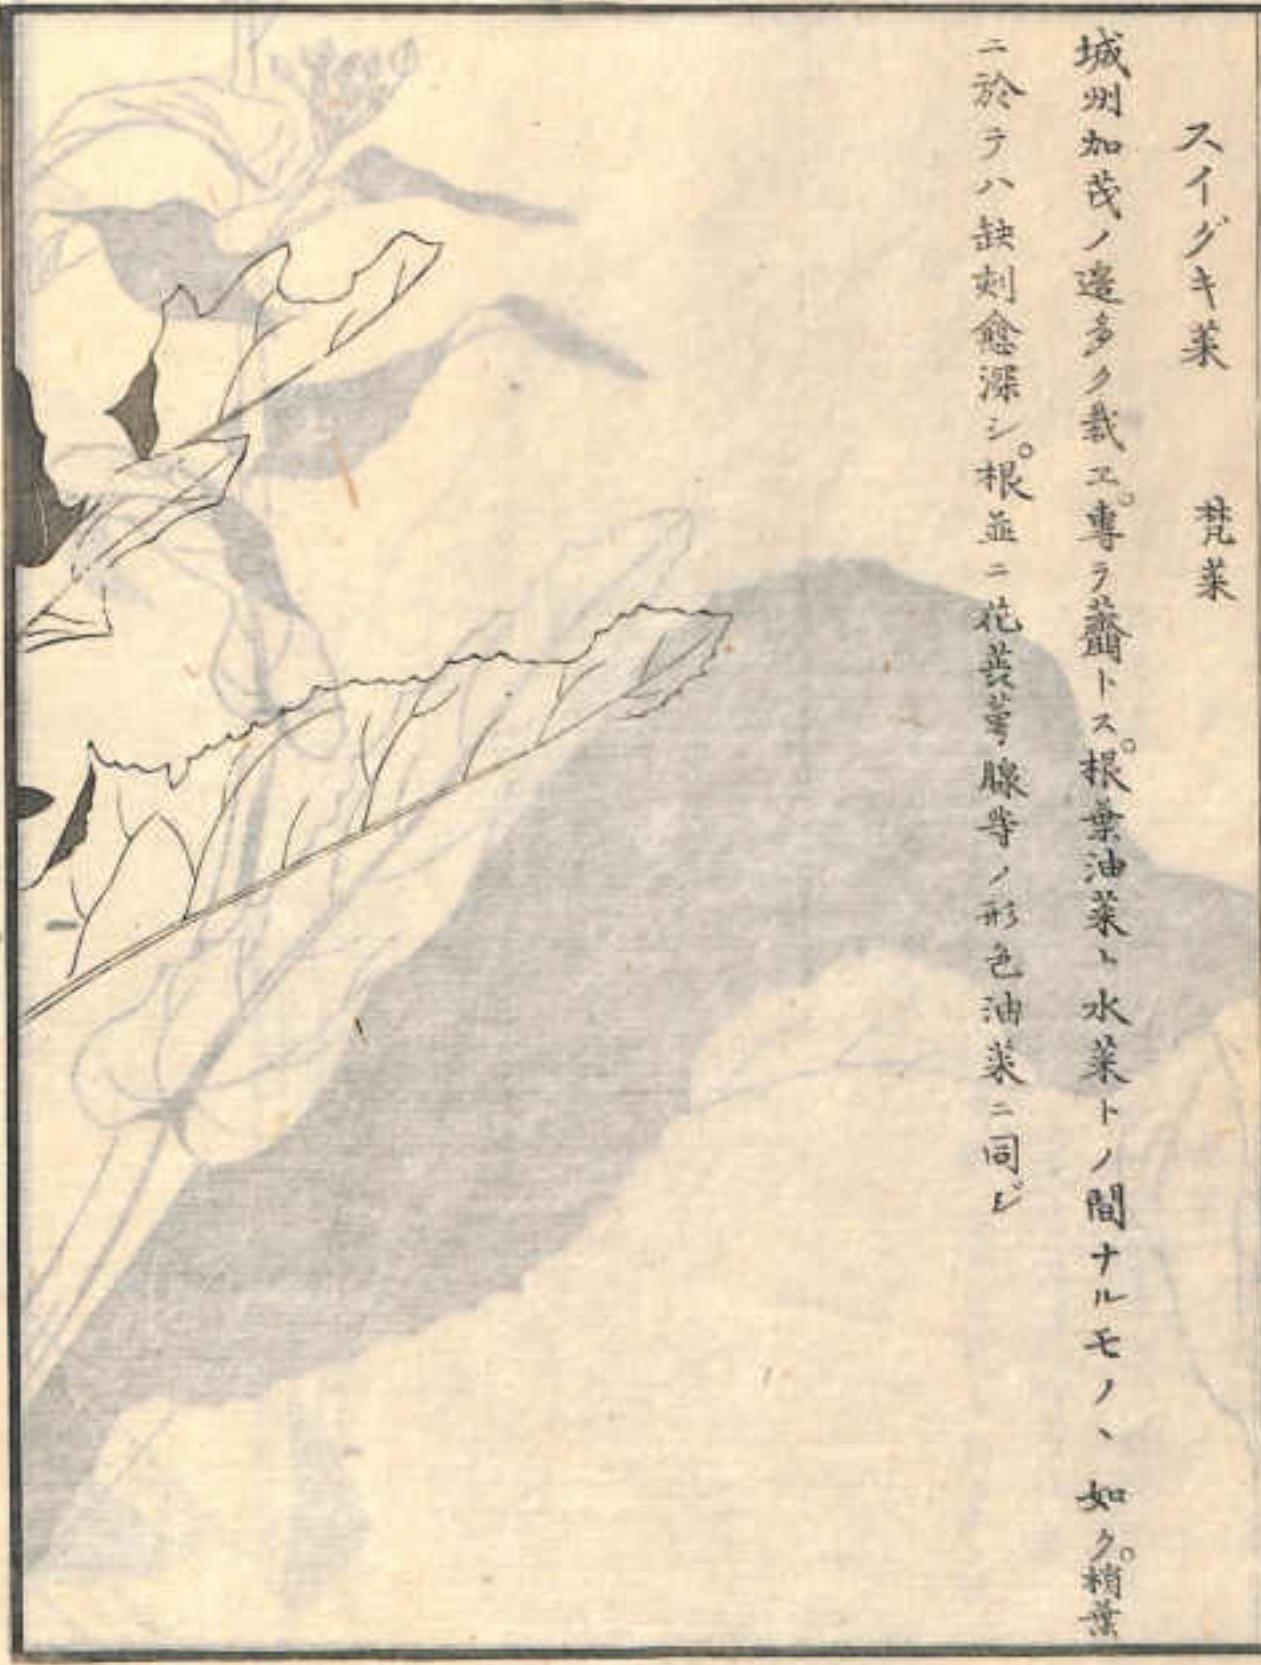 スイグキ菜 梵菜
城州加茂ノ邉多ク栽ヱ。專ラ虀トス。根葉油菜ト水菜トノ間ナルモノヽ如ク。梢葉
ニ於テハ缺刻愈深シ。根並ニ花萼腺等ノ形色油菜ニ同ジ